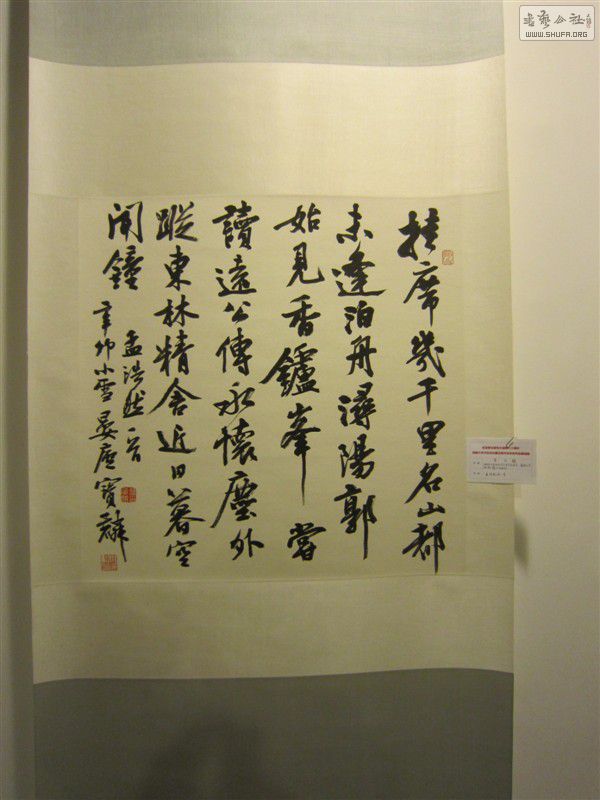 挂席幾千里名山都
未逢泊舟潯陽郭
始見香鑪峯嘗
讀遠公傳永懷塵外
蹤東林精舍近日暮空
聞鐘
孟浩然一首
辛卯小雪晏廬寶麟
書藝公社
WWW.SHUFA.ORG